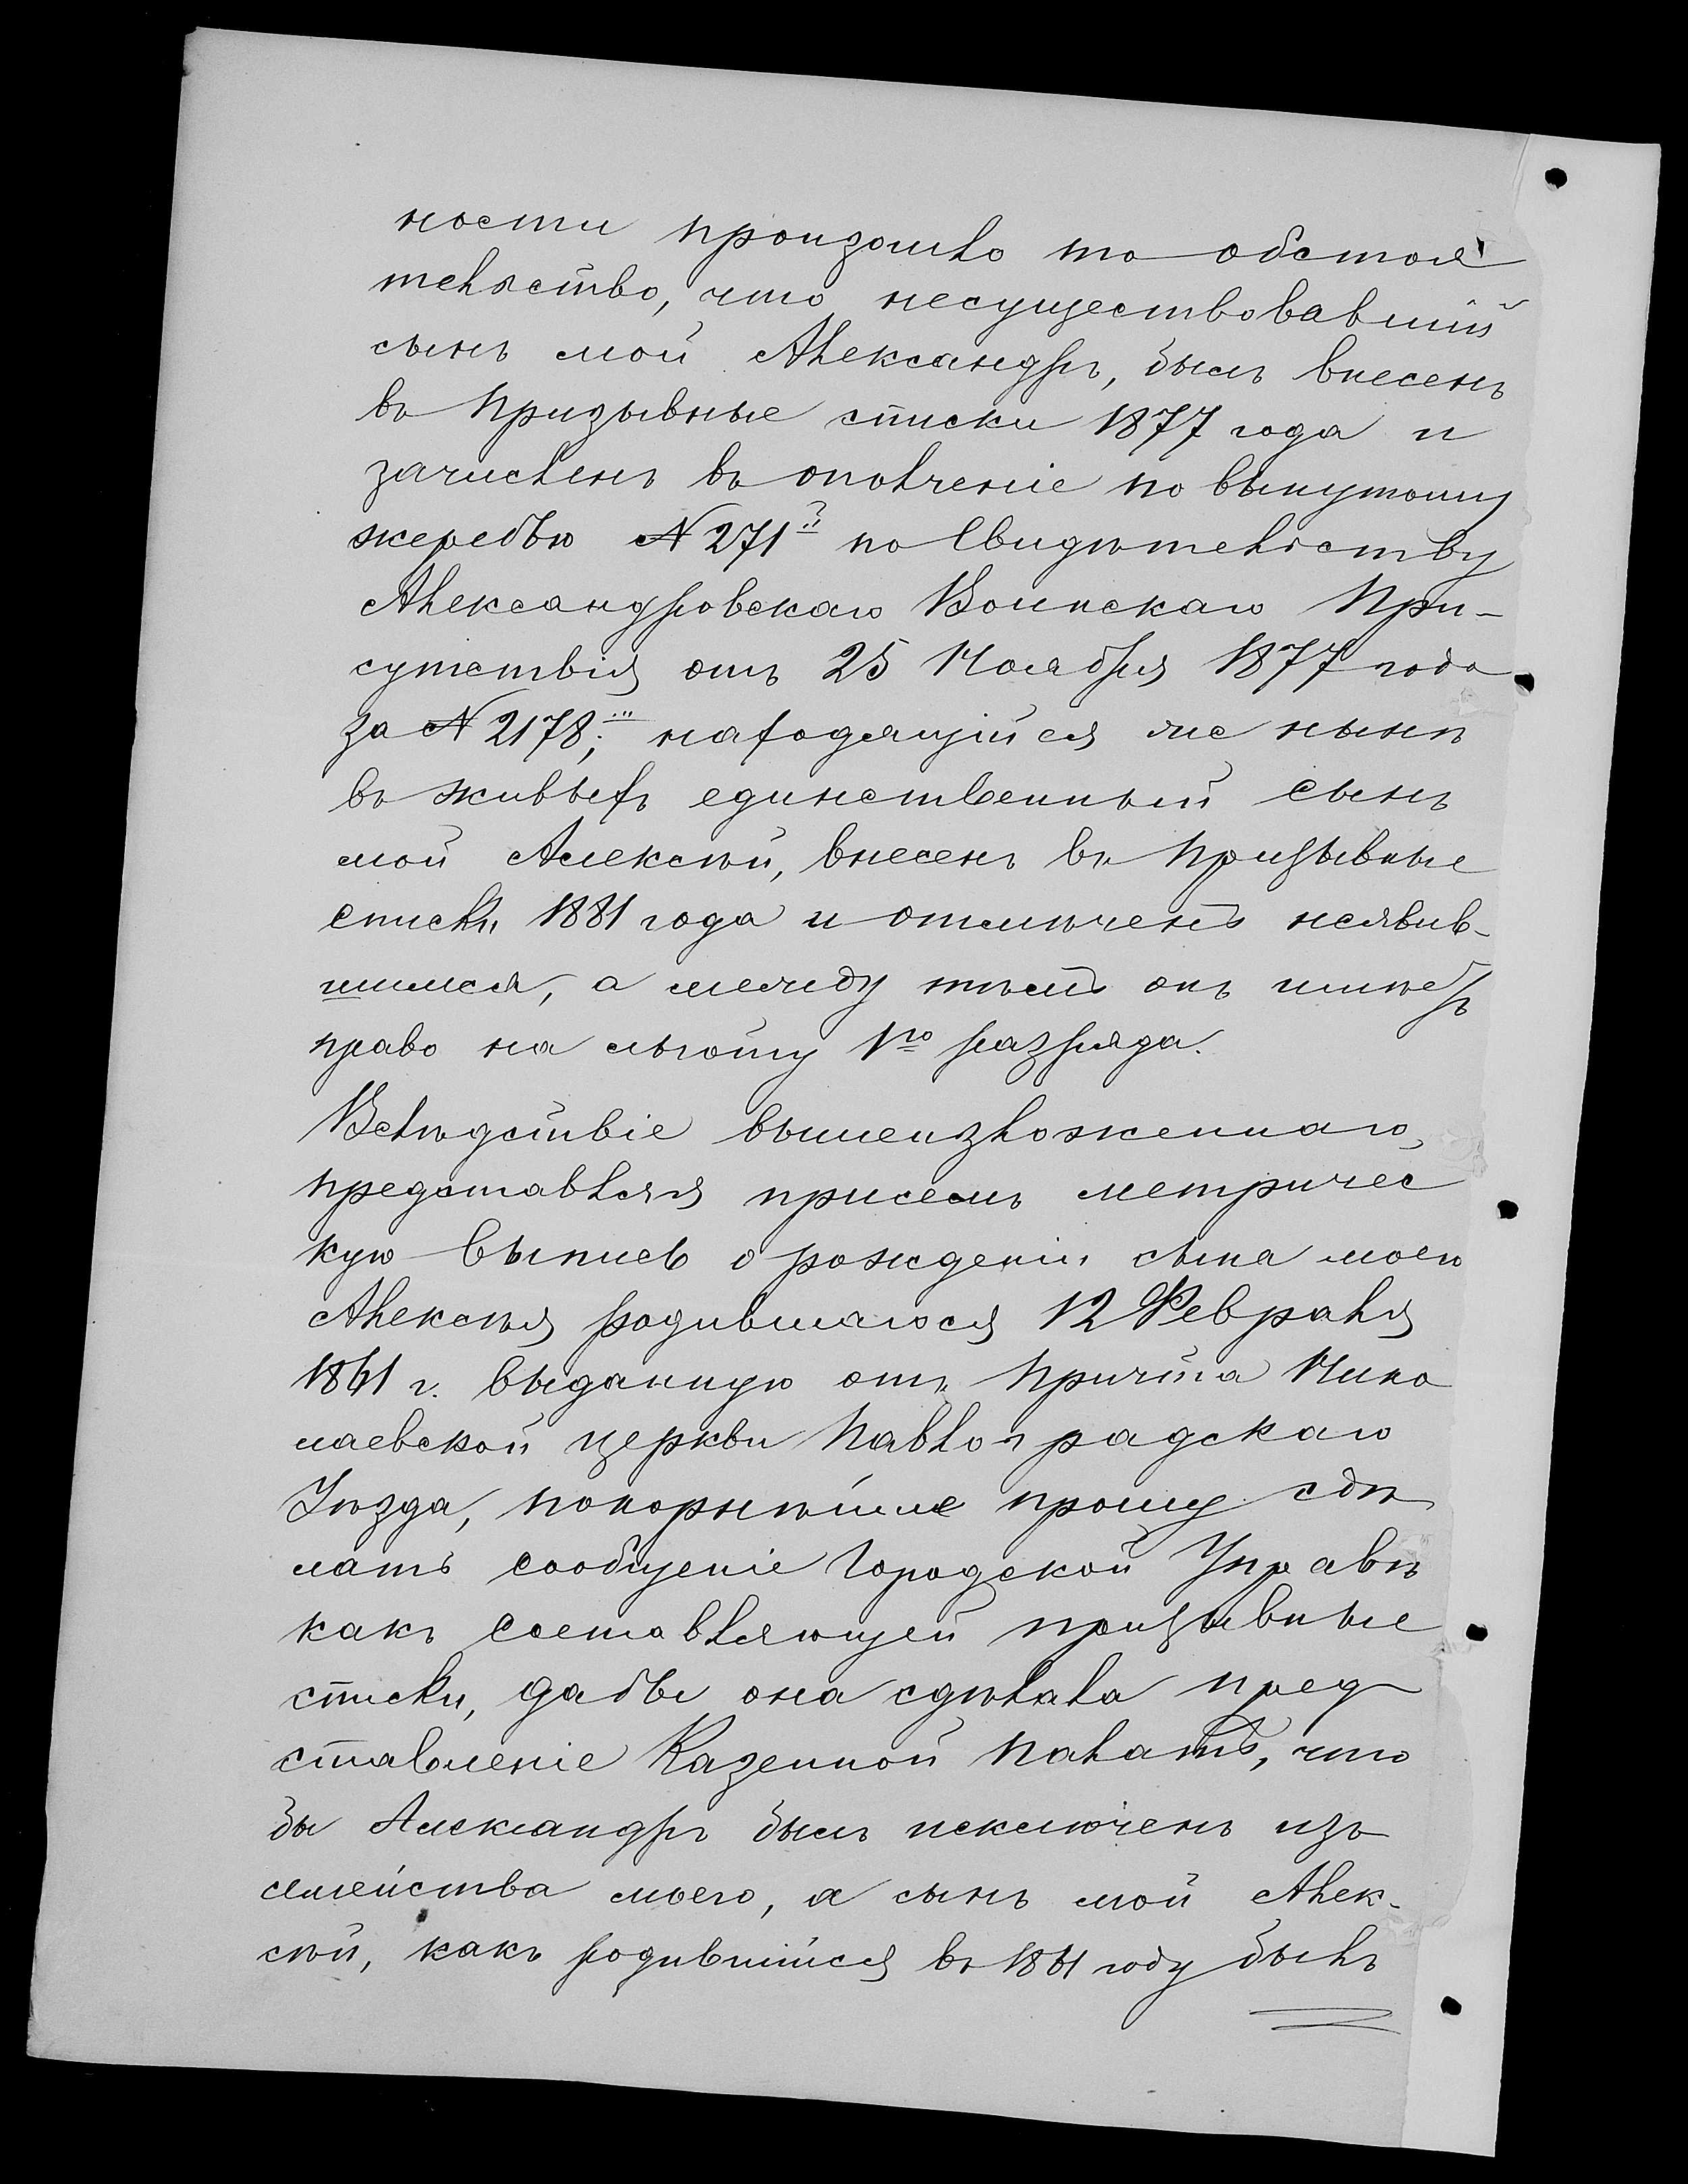 ности произошло то обстоя
тельство, что несуществовавшій
сынъ мой Александръ, былъ внесенъ
въ призывные списки 1877 года и
зачисленъ въ ополченіе по вынутому
жеребью № 271 по Свидѣтельству
Александровскаго Воинскаго При-
сутствія отъ 25 Ноября 1877 года
за № 2178; находящійся же нынѣ
въ живыхъ единственный сынъ
мой Алексѣй, внесенъ въ призывные
списки 1881 года и отмѣченъ неявив-
шимся, а между тѣмъ онъ имѣетъ
право на льготу 1го разряда.
Вслѣдствіе вышеизложеннаго,
представляя присемъ метричес
кую выпись о рожденіи сына моего
Алексѣя родившагося 12 Февраля
1861 г. выданную отъ Причта Нико
лаевской церкви Павлоградскаго
Уѣзда, покорнѣйше прошу сдѣ
лать сообщеніе Городской Управѣ
какъ составляющей призывные
списки, дабы она сдѣлала пред
ставленіе Казенной Палатѣ, что
бы Александръ былъ исключенъ изъ
семейства моего, а сынъ мой Алек-
сѣй, какъ родившійся въ 1861 году былъ